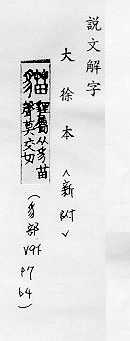 說文解字
大徐本〈新附〉
貓貍屬从豸苗
聲莫交切
(豸部
V9下
p7
b4)